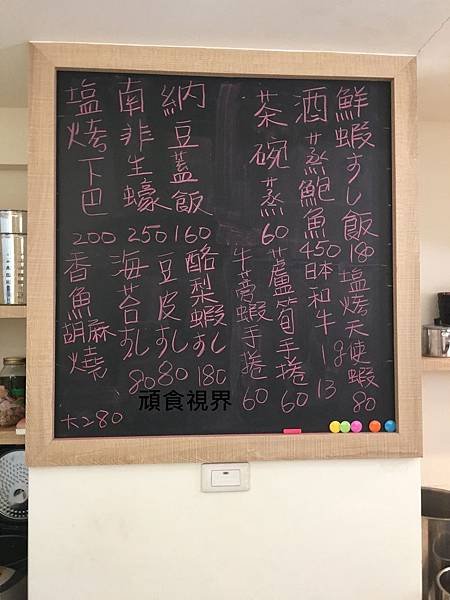 鮮蝦すし飯 180
酒蒸鮑魚 450
茶碗蒸 60
納豆蓋飯 160
南非生蠔 250
塩烤下巴 200
塩烤天使蝦 80
日本和牛 1g 13
蘆筍手捲 60
牛蒡蝦手捲 60
酪梨蝦すし 180
豆皮すし 80
海苔すし 80
香魚胡麻燒
大280
頑食視界